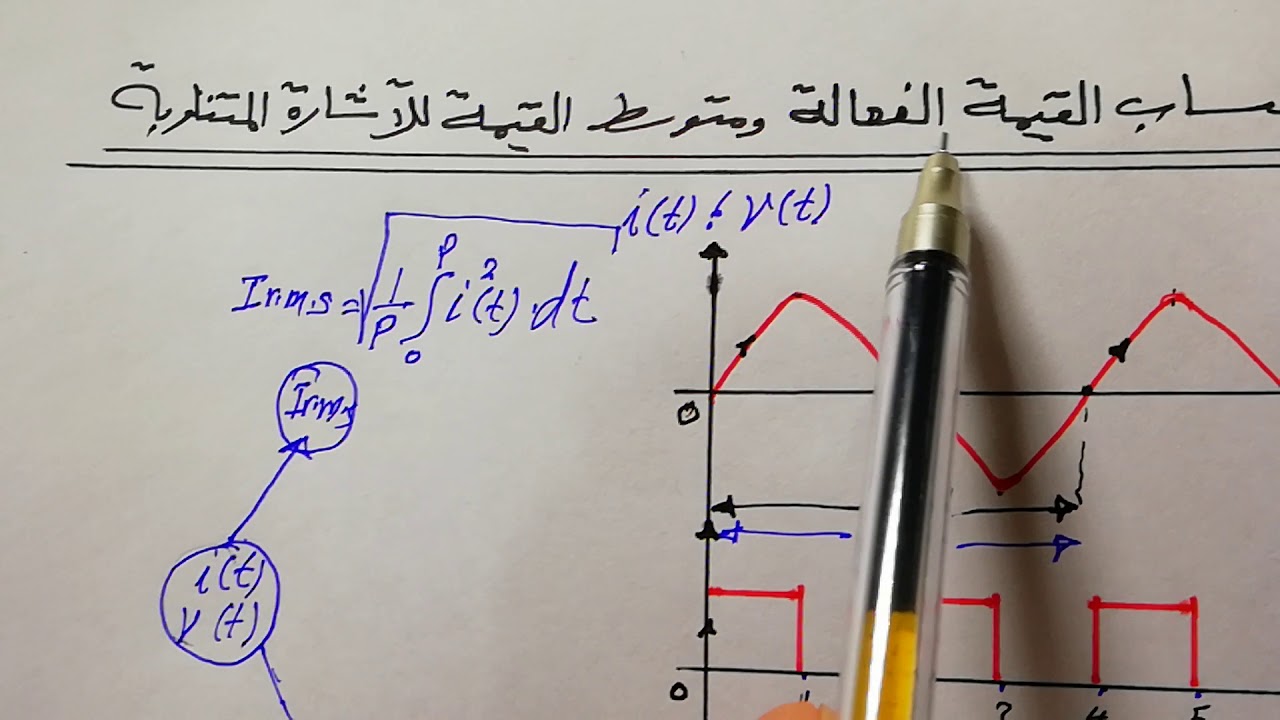 ساب القيمة الفعالة ومتوسط القيمة للآشارة المتناوبة
i(t) ; v(t)
Ir.m.s = √ 1/P ∫₀ᴾ i²(t).dt
Ir.m.s
0
i(t)
v(t)
0 1 3 4 5